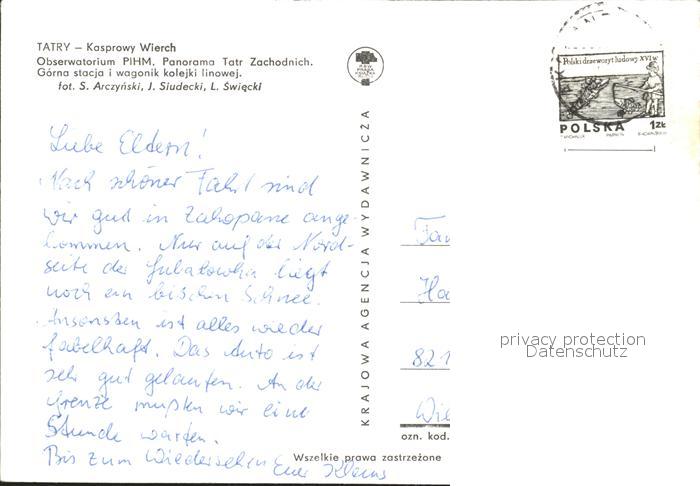 TATRY – Kasprowy Wierch
Obserwatorium PIHM. Panorama Tatr Zachodnich.
Górna stacja i wagonik kolejki linowej.
fot. S. Arczyński, J. Siudecki, L. Święcki
Polski drzeworyt ludowy XVI w
POLSKA 1 ZŁ
Liebe Eltern!
Nach schöner Fahrt sind
wir gut in Zakopane ange-
kommen. Nur auf der Nord-
seite der Gubałowka liegt
noch ein bischen Schnee.
Ansonsten ist alles wieder
fabelhaft. Das Auto ist
sehr gut gelaufen. An der
Grenze mußten wir eine
Stunde warten.
Bis zum Wiedersehen Euer Klaus
KRAJOWA AGENCJA WYDAWNICZA
Fam
Ha
821
Wie
ozn. kod.
Wszelkie prawa zastrzeżone
privacy protection
Datenschutz